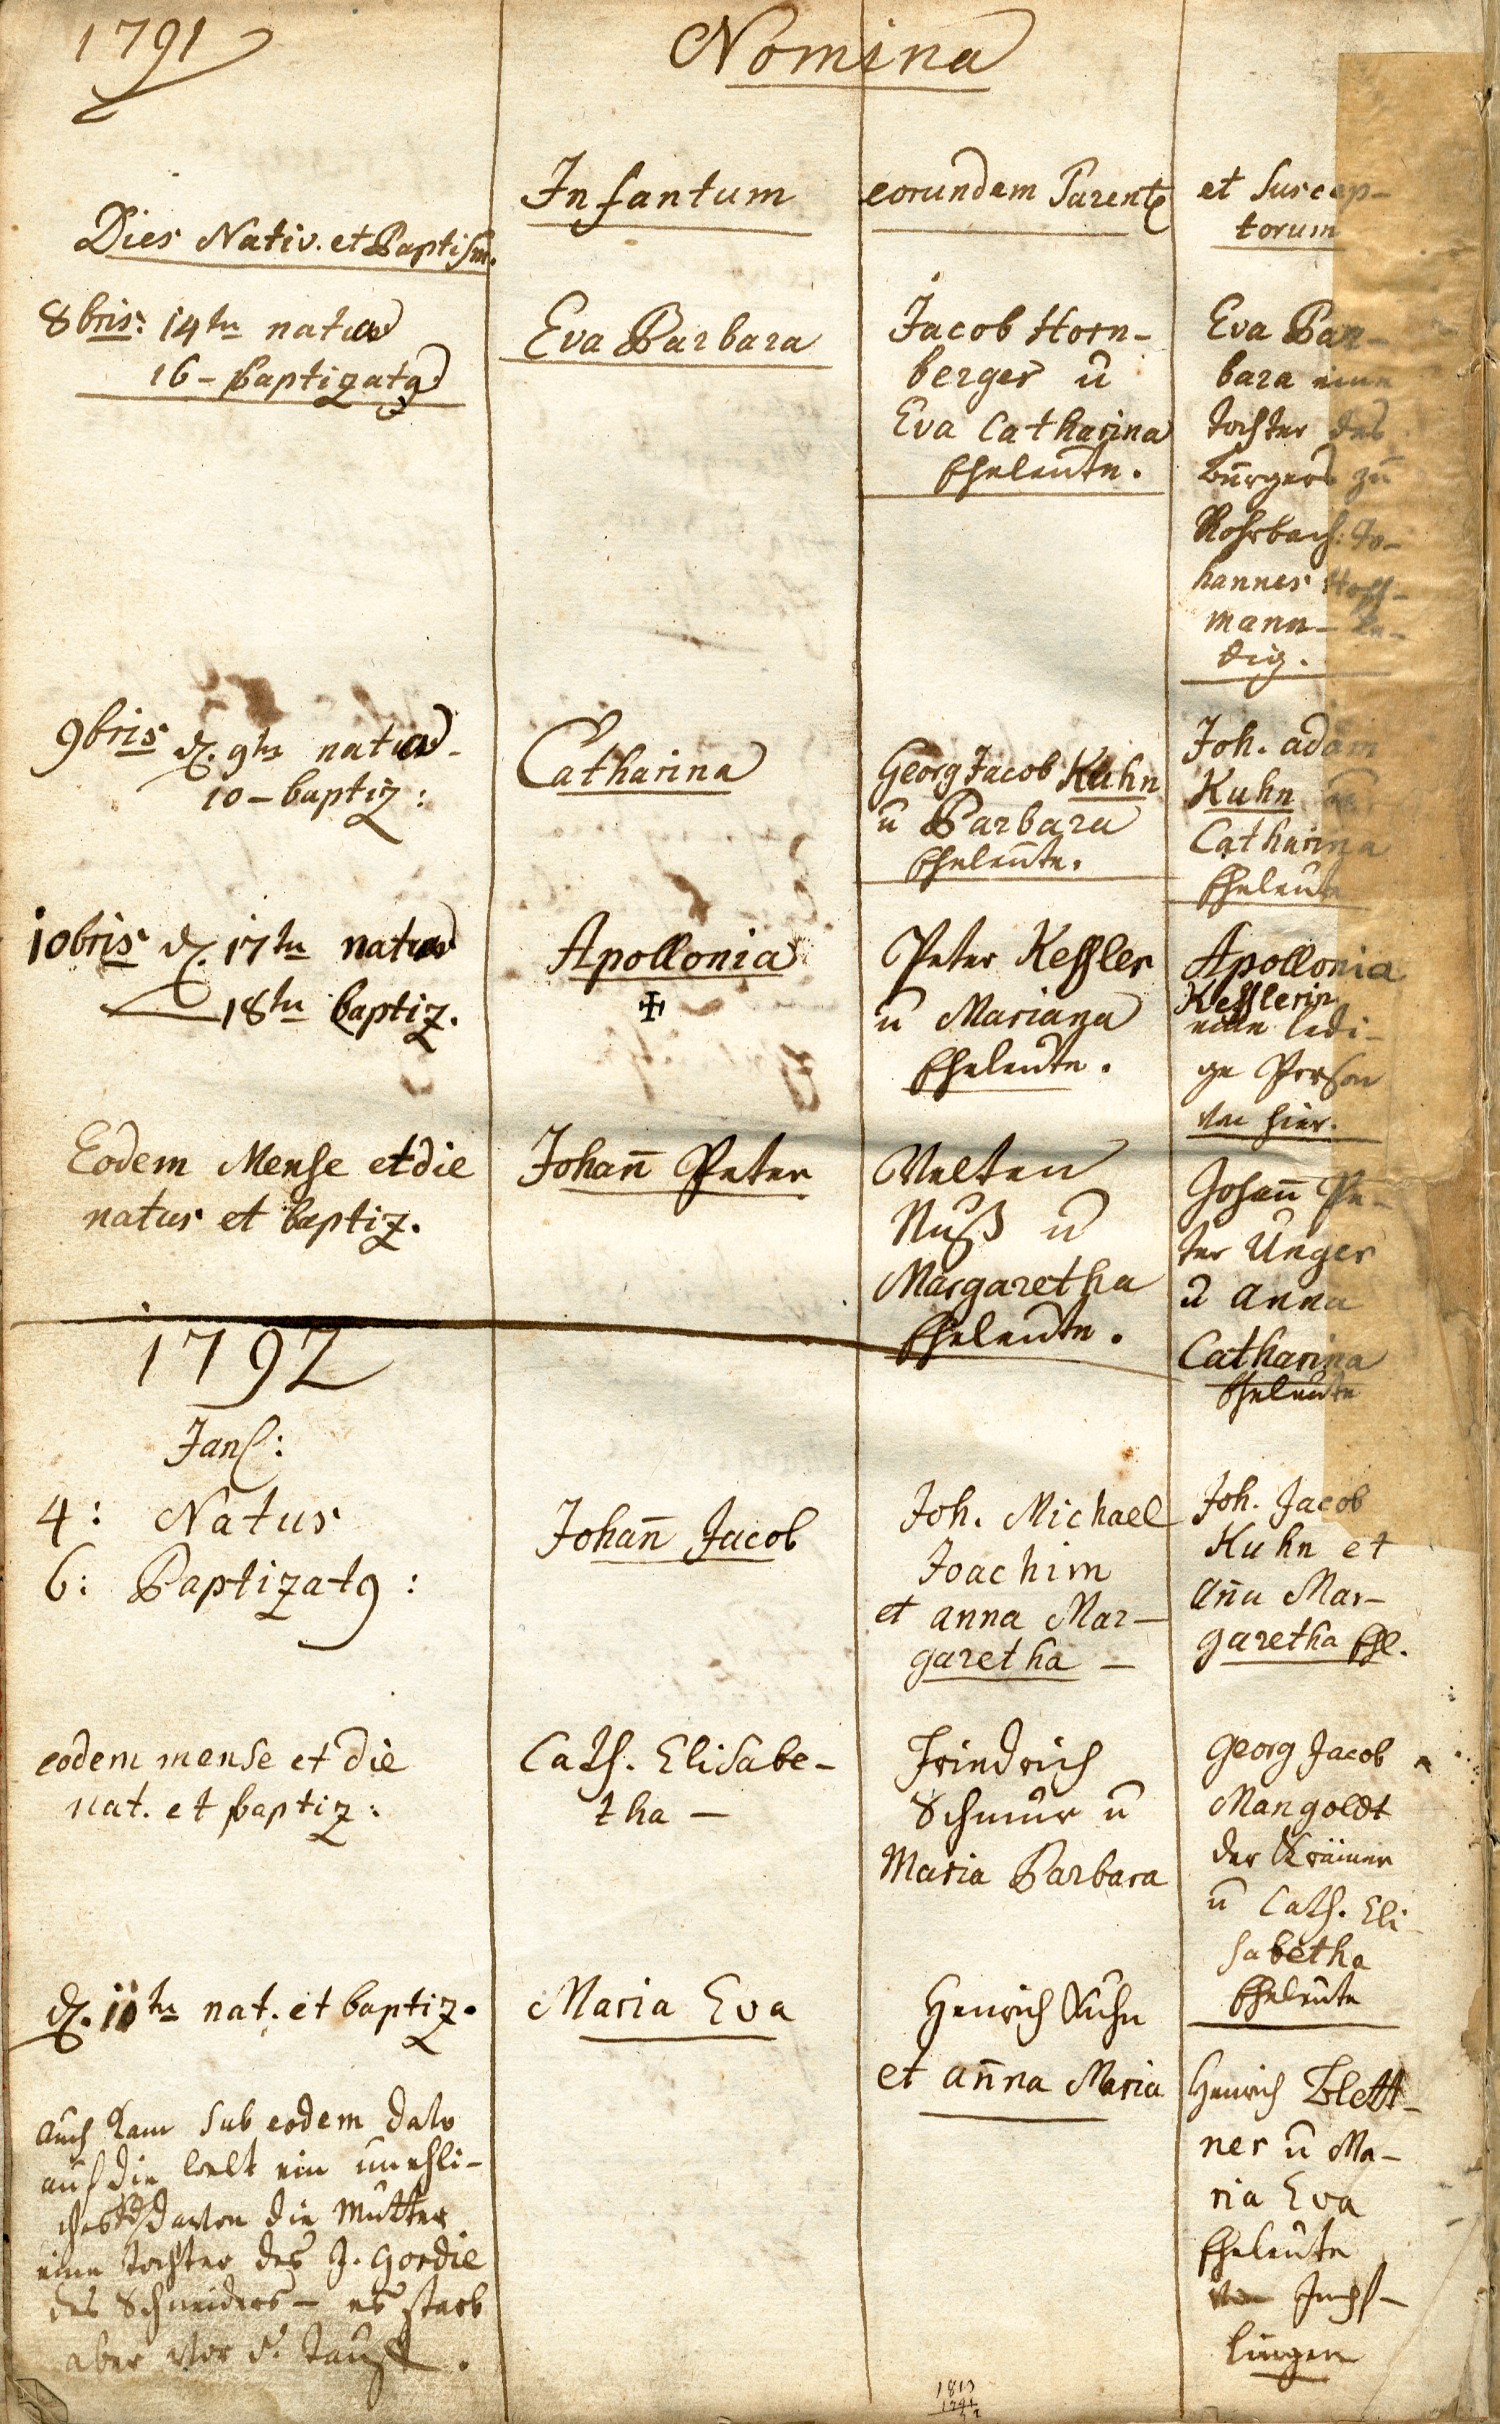 1791
Nomina
Dies Nativ. et Baptism.
Infantum
eorundem Parent
et Suscep-
torum
8bris: 14tn nata
16 - baptizata
Eva Barbara
Jacob Horn-
berger ū
Eva Catharina
Eheleute.
Eva Bar-
bara eine
tochter des
bürgers zu
Rohrbach: Jo-
hannes Hoff-
mann - le-
dig.
9bris d. 9tn nata -
10 - baptiz:
Catharina
Georg Jacob Kuhn
ū Barbara
Eheleute.
Joh. adam
Kuhn
Catharina
Eheleute
10bris d. 17tn nata
18tn baptiz.
Apollonia
Peter Keßler
ū Mariana
Eheleute.
Apollonia
Keßlerin
eine ledi-
ge Person
von hier.
Eodem Mense et die
natus et baptiz.
Johañ Peter
Velten
Nuß ū
Margaretha
Eheleute.
Johañ Pe-
ter Unger
ū anna
Catharina
Eheleute
1792
Jan:
4: Natus
6: Baptizat9:
Johañ Jacob
Joh. Michael
Joachim
et anna Mar-
garetha -
Joh. Jacob
Kuhn et
añа Mar-
garetha Ehl.
eodem mense et die
nat. et baptiz:
Cath. Elisabe-
tha -
Friedrich
Schnur ū
Maria Barbara
Georg Jacob
Mangoldt
der Krämer
ū Cath. Eli
sabetha
Eheleute
d. 11tn nat. et baptiz.
Maria Eva
Henrich Kuhn
et añna Maria
Henrich Blett-
ner ū Ma-
ria Eva
Eheleute
von
lingen
auch kam sub eodem dato
auf die welt ein unehli-
ches davon die Mutter
eine tochter des J. Gordie
des Schneiders - es starb
aber vor d. tauff.